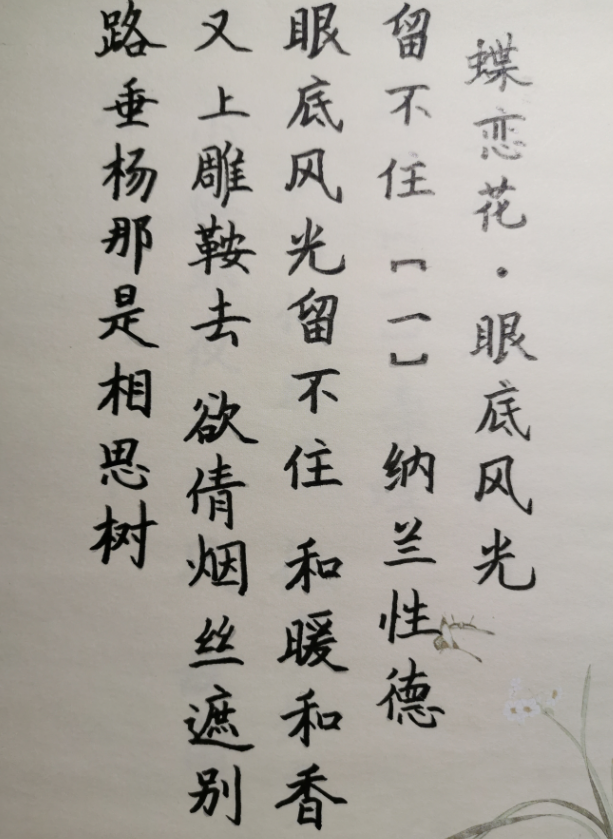 蝶恋花·眼底风光
留不住【一】 纳兰性德
眼底风光留不住 和暖和香
又上雕鞍去 欲倩烟丝遮别
路垂杨那是相思树